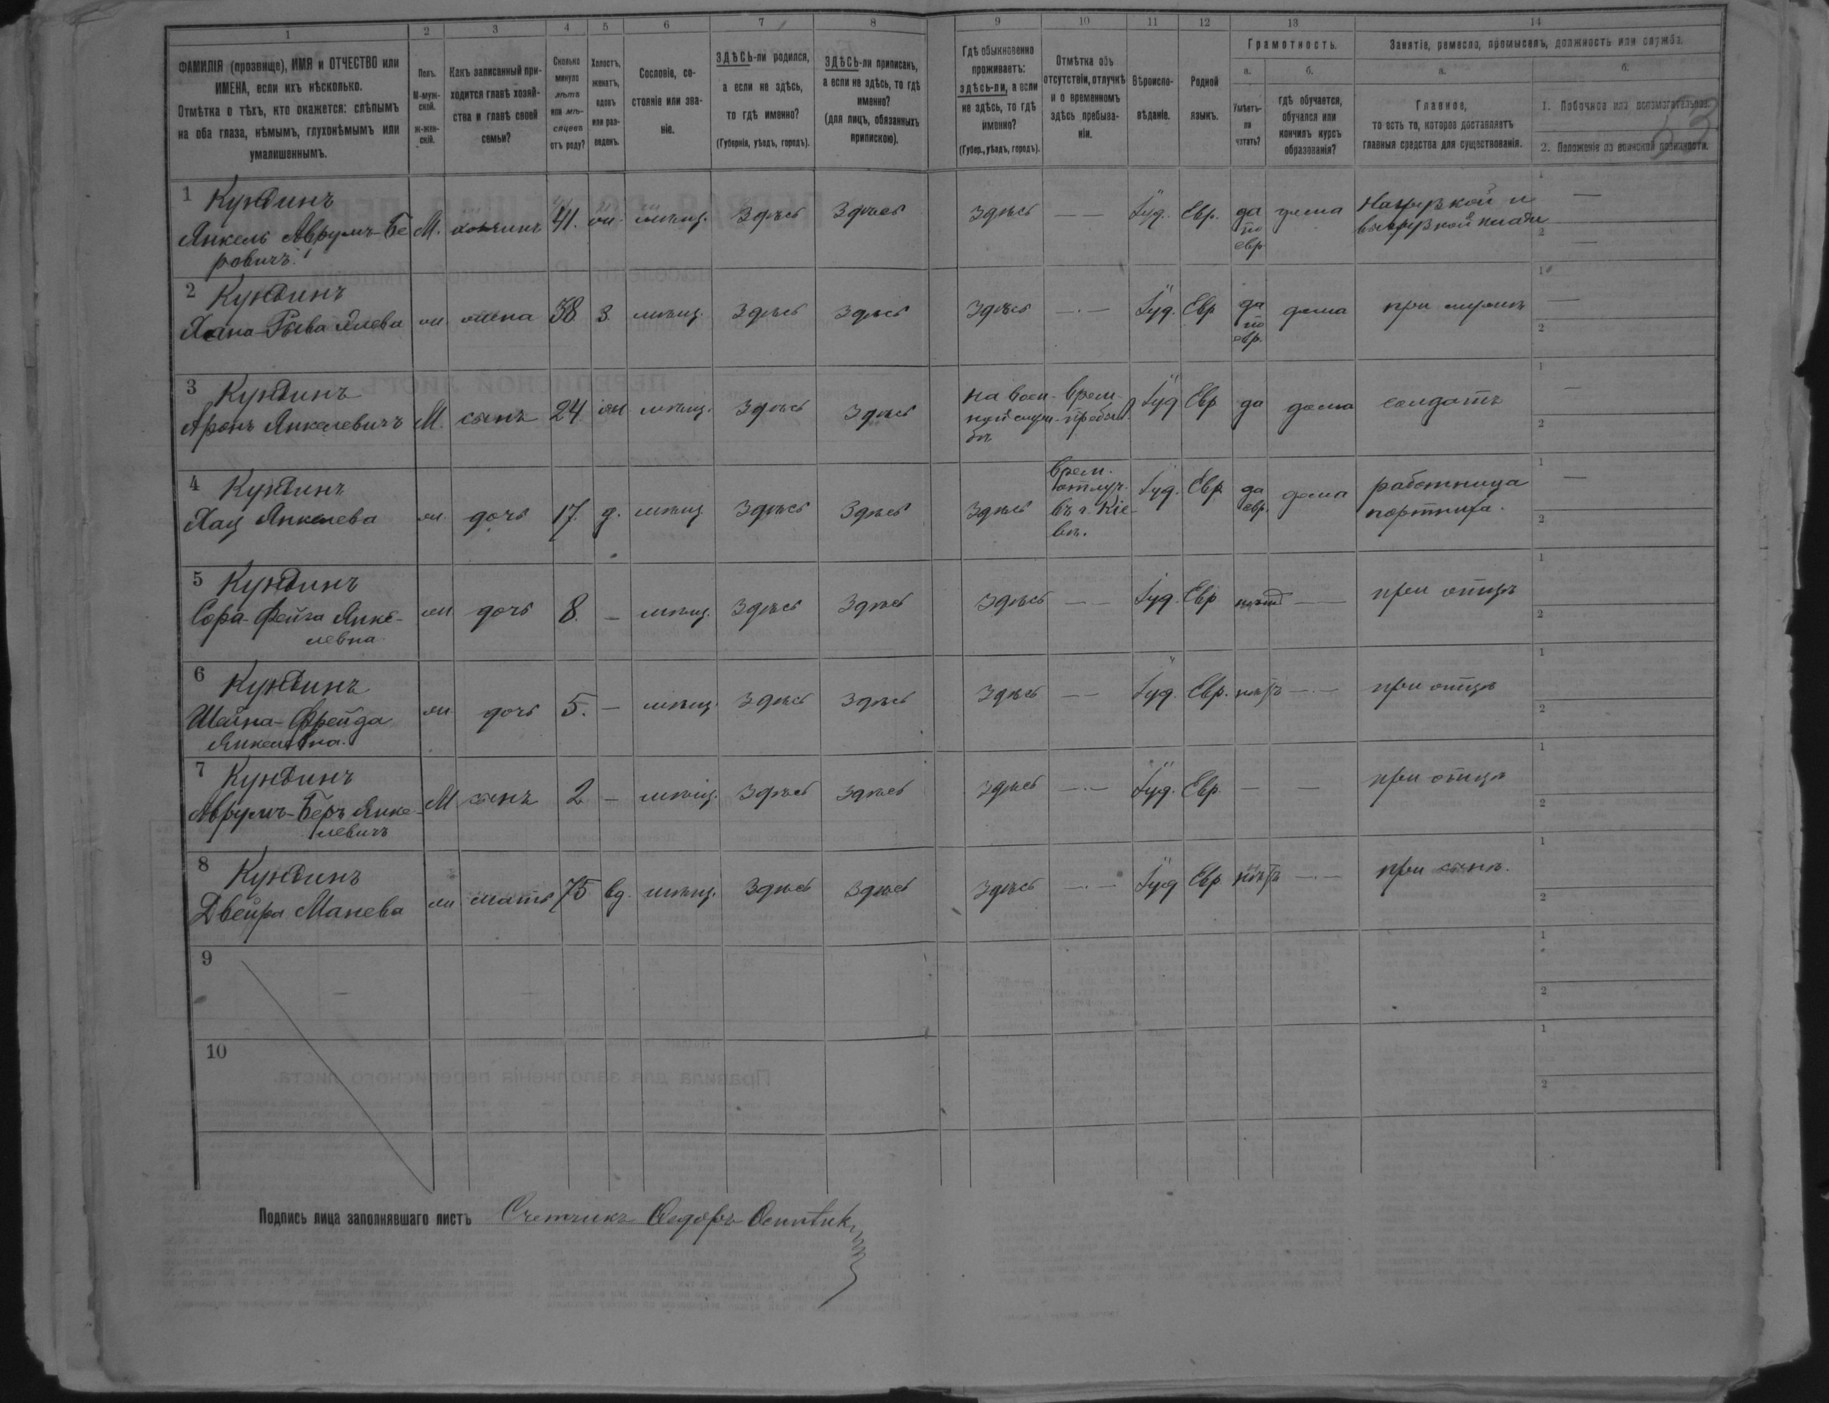 1 2 3 4 5 6 7 8 9 10 11 12 13 14
ФАМИЛІЯ (прозвище), ИМЯ и ОТЧЕСТВО или
ИМЕНА, если ихъ нѣсколько.
Отмѣтка о тѣхъ, кто окажется: слѣпымъ
на оба глаза, нѣмымъ, глухонѣмымъ или
умалишеннымъ.
Полъ.
М-муж-
ской.
ж-жен-
скій.
Какъ записанный при-
ходится главѣ хозяй-
ства и главѣ своей
семьи?
Сколько
минуло
лѣтъ
или мѣ-
сяцевъ
отъ роду?
Холостъ,
женатъ,
вдовъ
или раз-
веденъ.
Сословіе, со-
стояніе или зва-
ніе.
ЗДѢСЬ-ли родился,
а если не здѣсь,
то гдѣ именно?
(Губернія, уѣздъ, городъ).
ЗДѢСЬ-ли приписанъ,
а если не здѣсь, то гдѣ
именно?
(для лицъ, обязанныхъ
припискою).
Гдѣ обыкновенно
проживаетъ:
здѣсь-ли, а если
не здѣсь, то гдѣ
именно?
(Губер., уѣздъ, городъ).
Отмѣтка объ
отсутствіи, отлучкѣ
и о временномъ
здѣсь пребыва-
ніи.
Вѣроиспо-
вѣданіе.
Родной
языкъ.
Грамотность.
а.
Умѣетъ-
ли
читать?
б.
гдѣ обучается,
обучался или
кончилъ курсъ
образованія?
Занятіе, ремесло, промыселъ, должность или служба.
а.
Главное,
то есть то, которое доставляетъ
главныя средства для существованія.
б.
1. Побочное или вспомогательное.
2. Положеніе по воинской повинности.
53
1 Кундинъ
Янкель Аврумъ-Бе
ровичъ.
М. хозяинъ 41. ж. мѣщ. Здѣсь Здѣсь Здѣсь — — Іуд. Евр. да по евр. дома Нагрузкой и
выгрузкой клади
2 Кундинъ
Хана-Рыва
ж. жена 38 з. мѣщ. Здѣсь Здѣсь Здѣсь — Іуд. Евр да по евр. дома при мужѣ
3 Кундинъ
Аронъ Янкелевичъ
М. сынъ 24 мѣщ. Здѣсь Здѣсь На воен-
ной служ-
бѣ
врем.
пребыв
Іуд Евр да дома солдатъ
4 Кундинъ
Янкелева
ж. дочь 17. д. мѣщ Здѣсь Здѣсь Здѣсь
врем.
отлуч.
въ г. Кіе-
вѣ.
Іуд. Евр да евр. дома работница
портниха.
5 Кундинъ
Сора-Фейга Янке-
левна
ж дочь 8. — мѣщ. Здѣсь Здѣсь Здѣсь — — Іуд. Евр нѣтъ — при отцѣ
6 Кундинъ
Шейна-Фрейда
Янкелевна.
ж дочь 5. — мѣщ. Здѣсь Здѣсь Здѣсь — — Іуд. Евр. нѣтъ — при отцѣ
7 Кундинъ
Аврумъ-Беръ Янке-
левичъ
М сынъ 2 — мѣщ. Здѣсь Здѣсь Здѣсь — Іуд. Евр. — — при отцѣ
8 Кундинъ
Двейра Манева
ж мать 75 вд. мѣщ. Здѣсь Здѣсь Здѣсь — Іуд Евр нѣтъ — при сынѣ.
9
10
Подпись лица заполнявшаго листъ Счетчикъ Федоръ